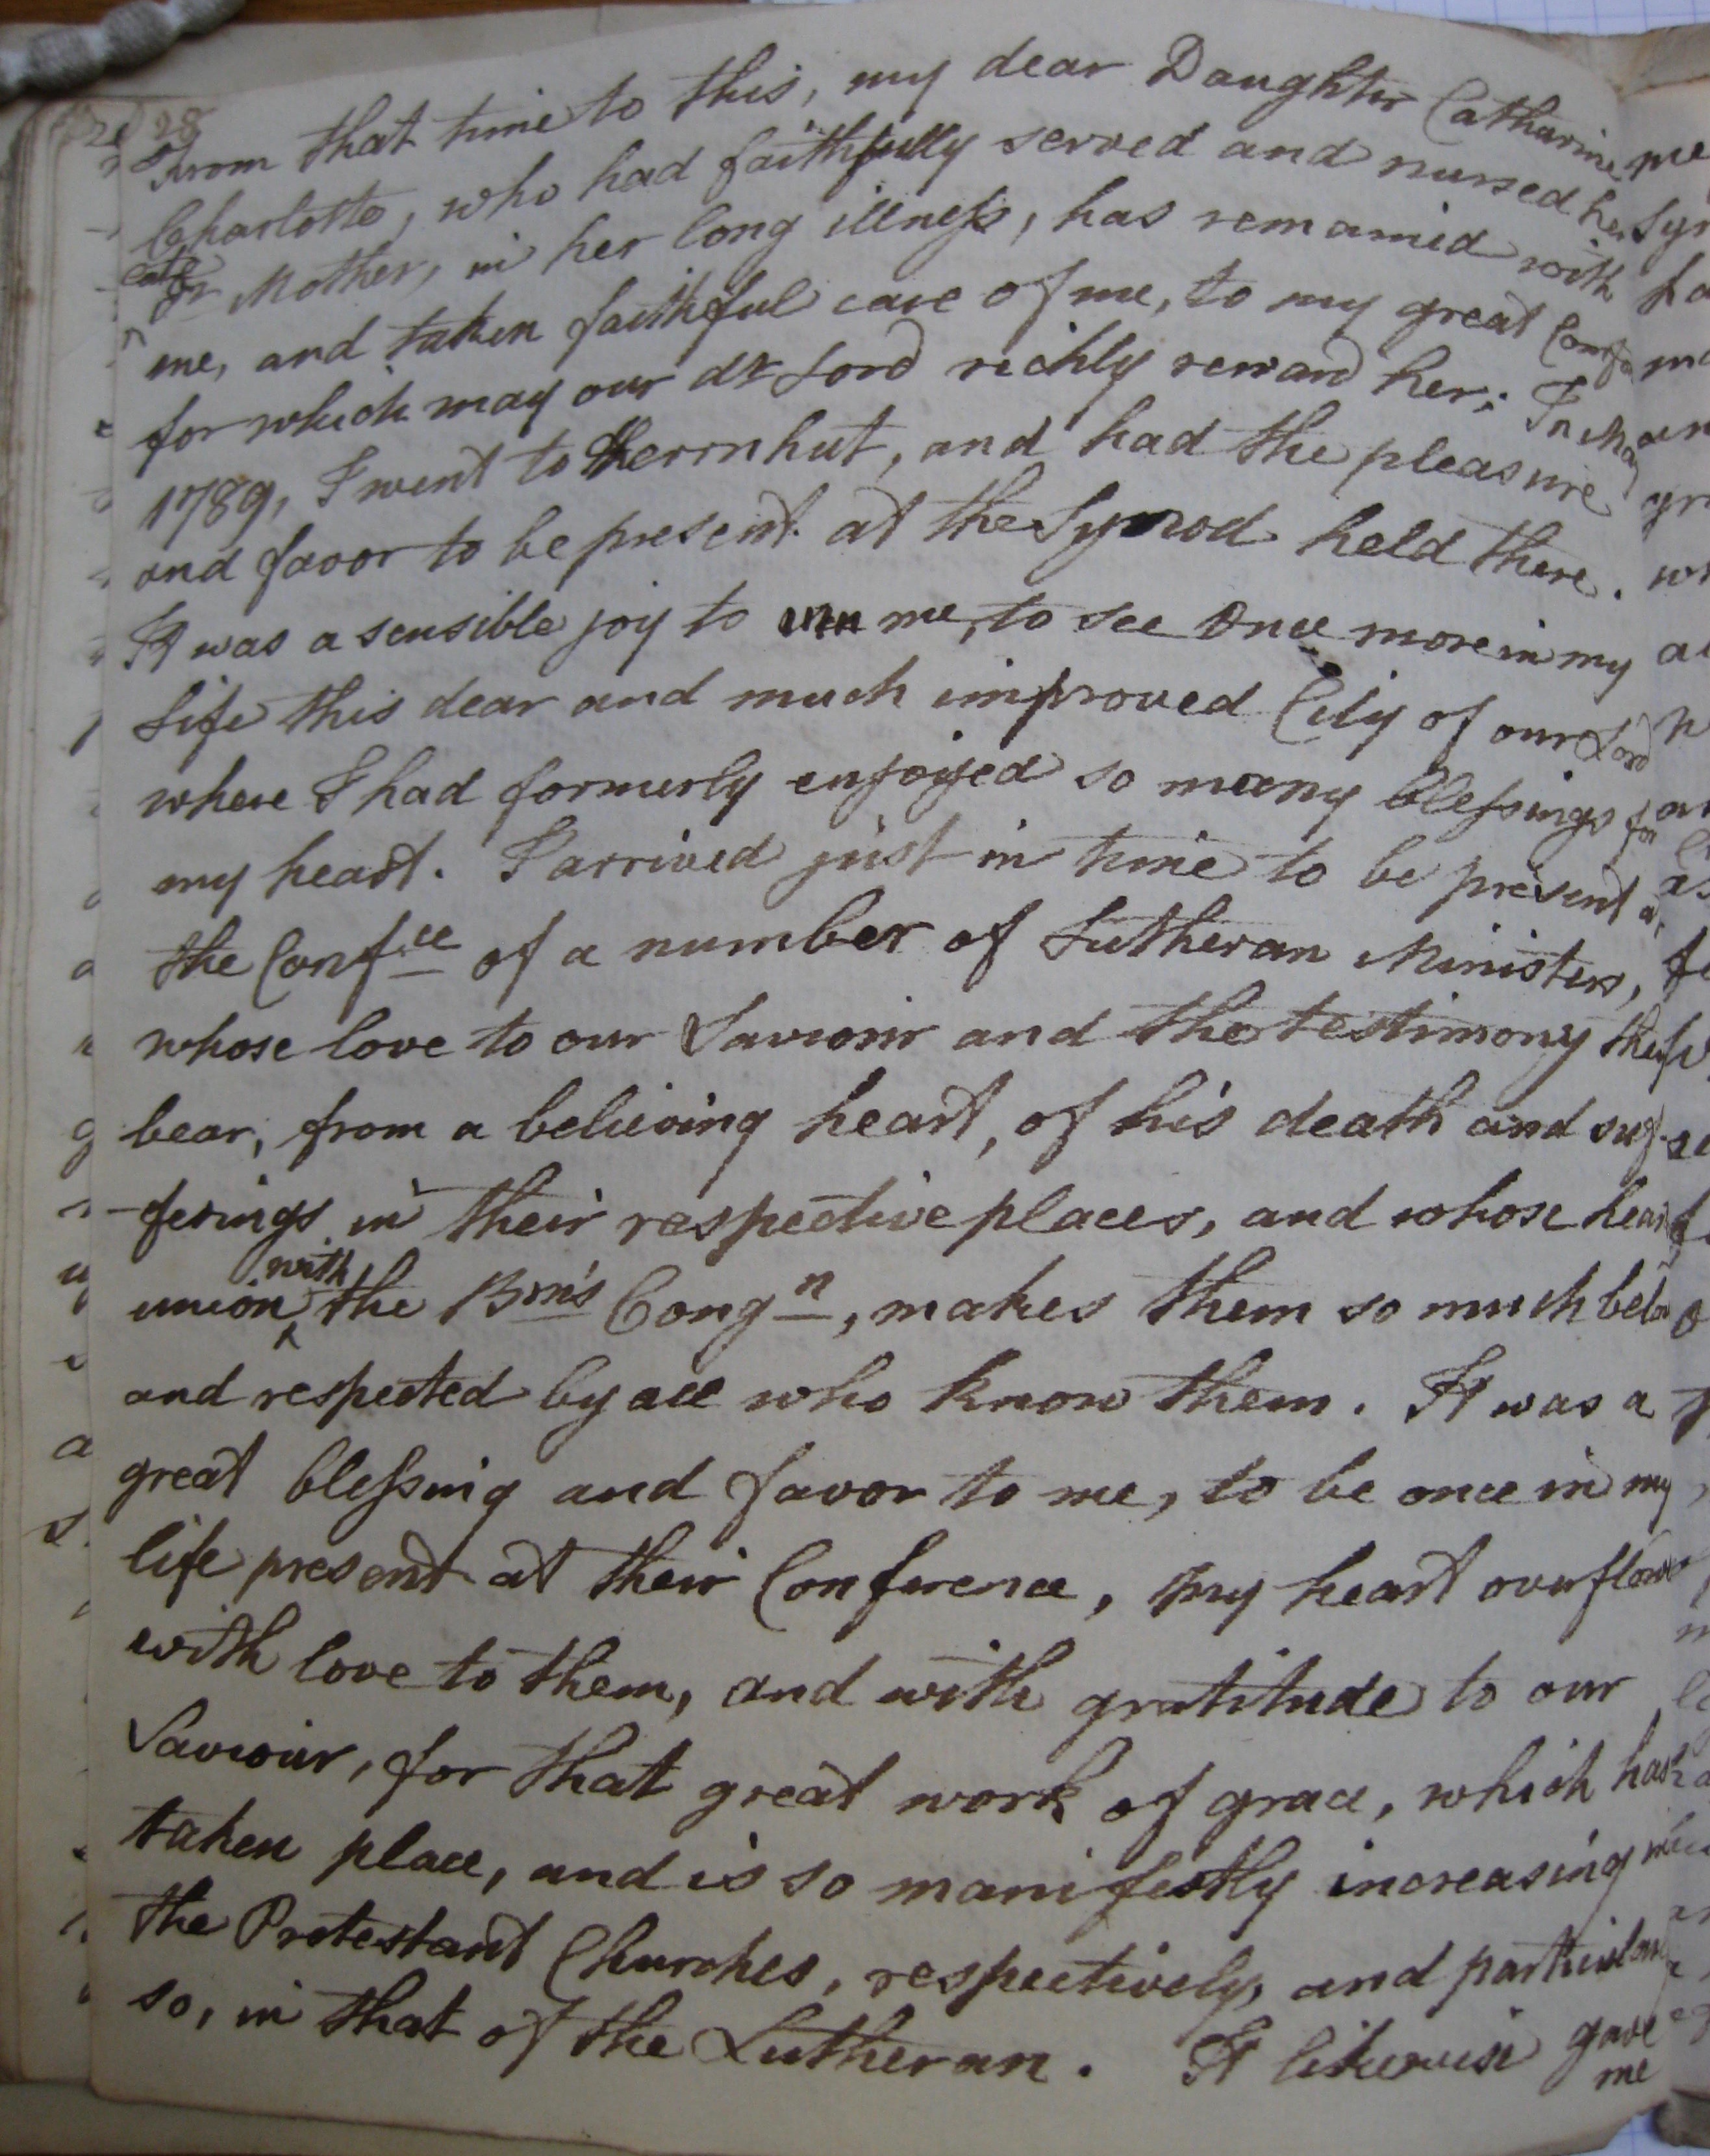 28
From that time to this, my dear Daughter Catharine
Charlotte, who had faithfully served and nursed her
late
dr Mother, in her long illness, has remained with
me, and taken faithful care of me, to my great Comfo
for which may our dr Lord richly reward her; In May
1789, I went to Herrnhut, and had the pleasure
and favor to be present at the Synod held there.
It was a sensible joy to me, to see once more in my
Life this dear and much improved City of our Lord
where I had formerly enjoyed so many blessings for
my heart. I arrived just in time to be present a
the Confce of a number of Lutheran Ministers,
whose love to our Saviour and the testimony they
bear, from a believing heart, of his death and suf-
-ferings in their respective places, and whose heart
with
union ^ the Brn's Congn, makes them so much belo
and respected by all who know them. It was a
great blessing and favor to me, to be once in my
life present at their Conference, my heart overflow
with love to them, and with gratitude to our
Saviour, for that great work of grace, which has
taken place, and is so manifestly increasing in
the Protestant Churches, respectively, and particular
so, in that of the Lutheran. It likewise gave
me